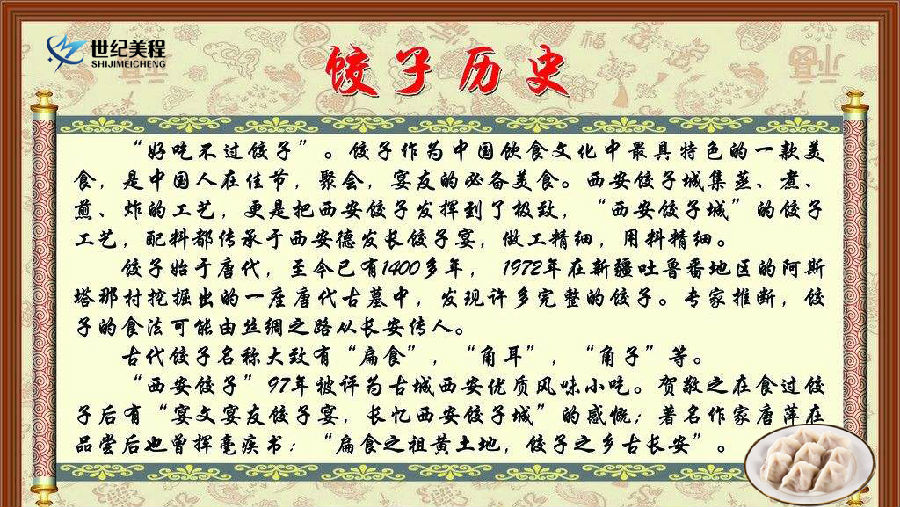 世纪美程
SHIJIMEICHENG
饺子历史
“好吃不过饺子”。饺子作为中国饮食文化中最具特色的一款美
食，是中国人在佳节，聚会，宴友的必备美食。西安饺子城集蒸、煮、
煎、炸的工艺，更是把西安饺子发挥到了极致，“西安饺子城”的饺子
工艺，配料都传承于西安德发长饺子宴，做工精细，用料精细。
饺子始于唐代，至今已有1400多年， 1972年在新疆吐鲁番地区的阿斯
塔那村挖掘出的一座唐代古墓中，发现许多完整的饺子。专家推断，饺
子的食法可能由丝绸之路从长安传人。
古代饺子名称大致有“扁食”，“角耳”，“角子”等。
“西安饺子”97年被评为古城西安优质风味小吃。贺敬之在食过饺
子后有“宴文宴友饺子宴，长忆西安饺子城”的感慨；著名作家唐萍在
品尝后也曾挥毫疾书：“扁食之祖黄土地，饺子之乡古长安”。